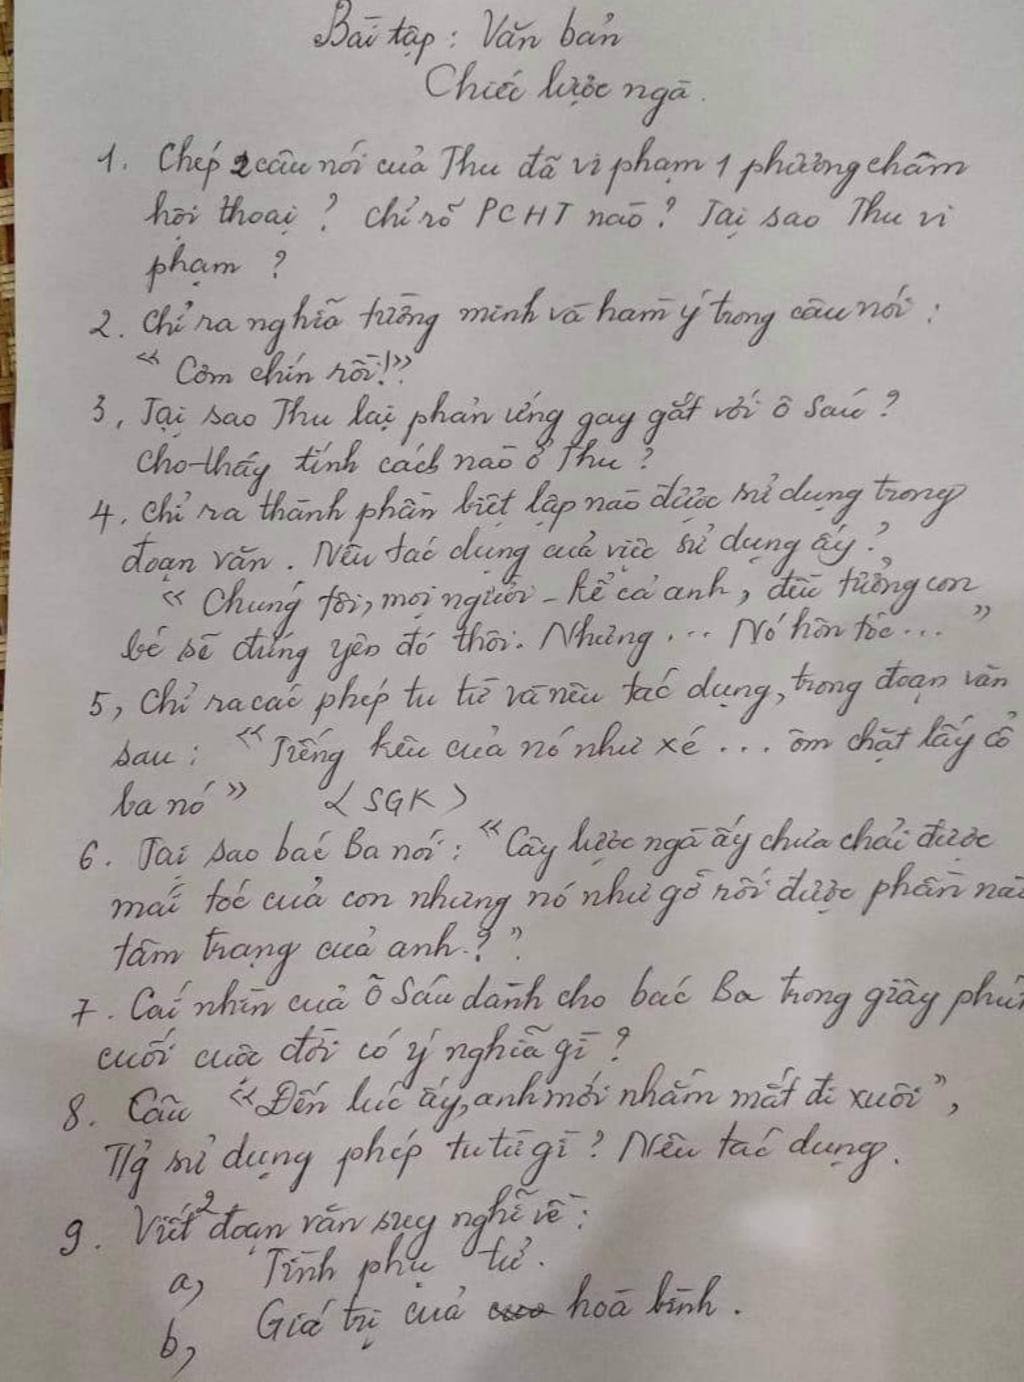 Bài tập : Văn bản
Chiếc lược ngà.
1. Chép 2 câu nói của Thu đã vi phạm 1 phương châm
hội thoại ? chỉ rõ PCHT nào ? Tại sao Thu vi
phạm ?
2. Chỉ ra nghĩa tường minh và hàm ý trong câu nói :
“ Cơm chín rồi!”?
3, Tại sao Thu lại phản ứng gay gắt với ô Sáu ?
cho thấy tính cách nào ở Thu ?
4, Chỉ ra thành phần biệt lập nào được sử dụng trong
đoạn văn. Nêu tác dụng của việc sử dụng ấy ?
“ Chúng tôi, mọi người - kể cả anh, đều tưởng con
bé sẽ đứng yên đó thôi. Nhưng ... Nó hôn tóc ... ”
5, Chỉ ra các phép tu từ và nêu tác dụng, trong đoạn văn
sau : “ Tiếng kêu của nó như xé ... ôm chặt lấy cổ
ba nó ” < SGK >
6. Tại sao bác Ba nói : “ Cây lược ngà ấy chưa chải được
mái tóc của con nhưng nó như gỡ rối được phần nào
tâm trạng của anh.? ”.
7. Cái nhìn của Ô Sáu dành cho bác Ba trong giây phút
cuối cuộc đời có ý nghĩa gì ?
8. Câu “ Đến lúc ấy, anh mới nhắm mắt đi xuôi ”,
T/g sử dụng phép tu từ gì ? Nêu tác dụng.
9. Viết 2 đoạn văn suy nghĩ về :
a, Tình phụ tử.
b, Giá trị của hoà bình.